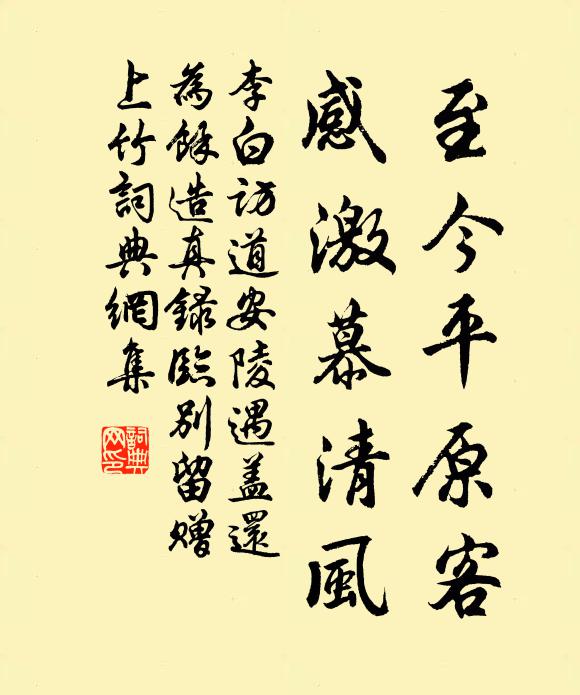 至今平原客
感激慕清風
李白訪道安陵遇盖還
為餘造真錄臨別留贈
上竹詞典網集
詞典网印